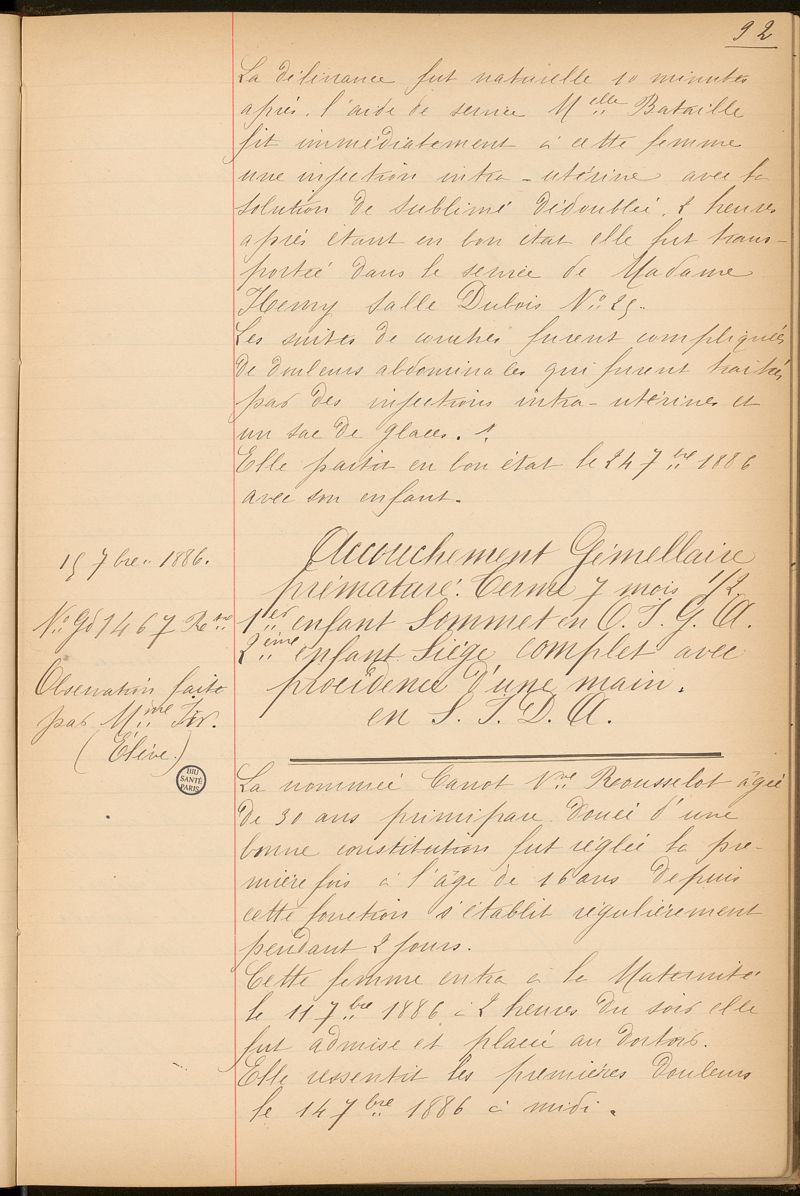 92
La délivrance fut naturelle 10 minutes
après. l'aide de service M.elle Bataille
fit immédiatement à cette femme
une injection intra-utérine avec la
solution de sublimé dédoublée. 2 heures
après étant en bon état elle fut trans-
portée dans le service de Madame
Henry Salle Dubois No 25.
Les suites de couches furent compliquées
de douleurs abdominales qui furent traités
par des injections intra-utérines et
un sac de glaces.
Elle partit en bon état le 24 7bre 1886
avec son enfant.
15 7bre. 1886.
No Gd 1467 Rtre
Observation faite
par Mme
(Elève.)
BIU
SANTÉ
PARIS
Accouchement Gémellaire
prématuré. Terme 7 mois 1/2.
1er enfant Sommet en O. I. G. A.
2ème enfant Siège complet avec
procidence d'une main.
en S. I. D. A.
La nommée Canot Vve Rousselot âgée
de 30 ans primipare douée d'une
bonne constitution fut réglée la pre-
mière fois à l'âge de 16 ans depuis
cette fonction s'établit régulièrement
pendant 2 jours.
Cette femme entra à la Maternité
le 11 7bre 1886 à 2 heures du soir elle
fut admise et placée au dortoir.
Elle ressentit les premières douleurs
le 14 7bre 1886 à midi.